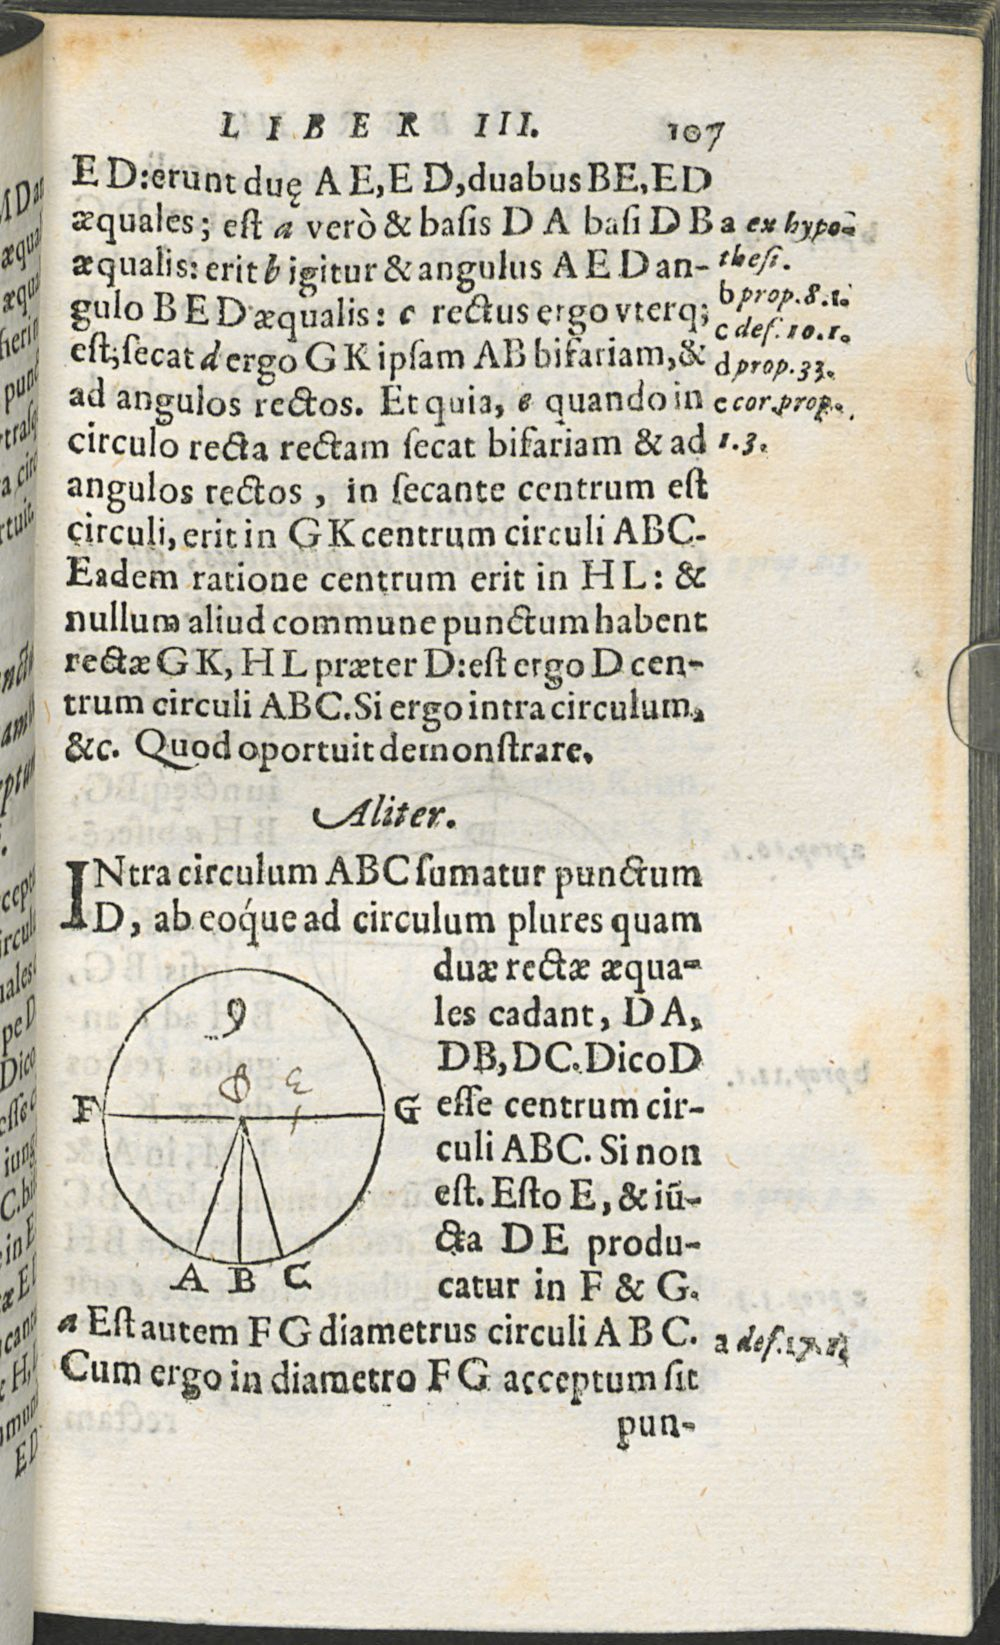 LIBER III. 107
E D:erunt duę A E, E D, duabus BE, ED
æquales; est a verò & basis D A basi D B
æqualis: erit b igitur & angulus A E D an-
gulo B E D æqualis: c rectus ergo vterq;
est; secat d ergo G K ipsam AB bifariam, &
ad angulos rectos. Et quia, e quando in
circulo recta rectam secat bifariam & ad
angulos rectos, in secante centrum est
circuli, erit in G K centrum circuli ABC.
Eadem ratione centrum erit in H L: &
nullum aliud commune punctum habent
rectæ G K, H L præter D: est ergo D cen-
trum circuli ABC. Si ergo intra circulum,
&c. Quod oportuit demonstrare.
a ex hypo-
thesi.
b prop. 8. 1.
c def. 10. 1.
d prop. 33.
e cor. prop.
1. 3.
Aliter.
INtra circulum ABC sumatur punctum
D, ab eóque ad circulum plures quam
duæ rectæ æqua-
les cadant, D A,
DB, DC. Dico D
esse centrum cir-
culi ABC. Si non
est. Esto E, & iū-
cta D E produ-
catur in F & G.
9
D E
F G
A B C
a Est autem F G diametrus circuli A B C.
Cum ergo in diametro F G acceptum sit
pun-
a def. 17. 1.